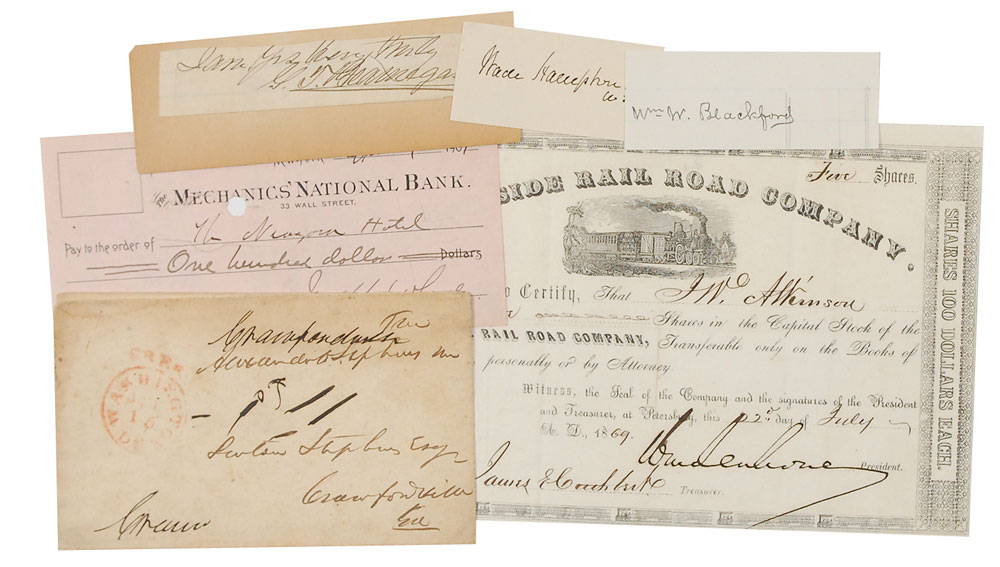 I am Yrs Very truly
G. T. Beauregard
Wade Hampton
Wm W. Blackford
MECHANICS' NATIONAL BANK.
33 WALL STREET,
Pay to the order of The New York Hotel
One hundred dollars Dollars
FREE
WASHINGTON
Alexander H Stephens
Linton Stephens Esqr
Crawfordville
Ga
Five Shares.
SIDE RAIL ROAD COMPANY.
to Certify, That J Wd Atkinson
Shares in the Capital Stock of the
RAIL ROAD COMPANY, Transferable only on the Books of
personally or by Attorney
Witness, the Seal of the Company and the signatures of the President
and Treasurer, at Petersburg, this 22nd day of July
A. D., 1869.
President.
Treasurer.
SHARES 100 DOLLARS EACH.